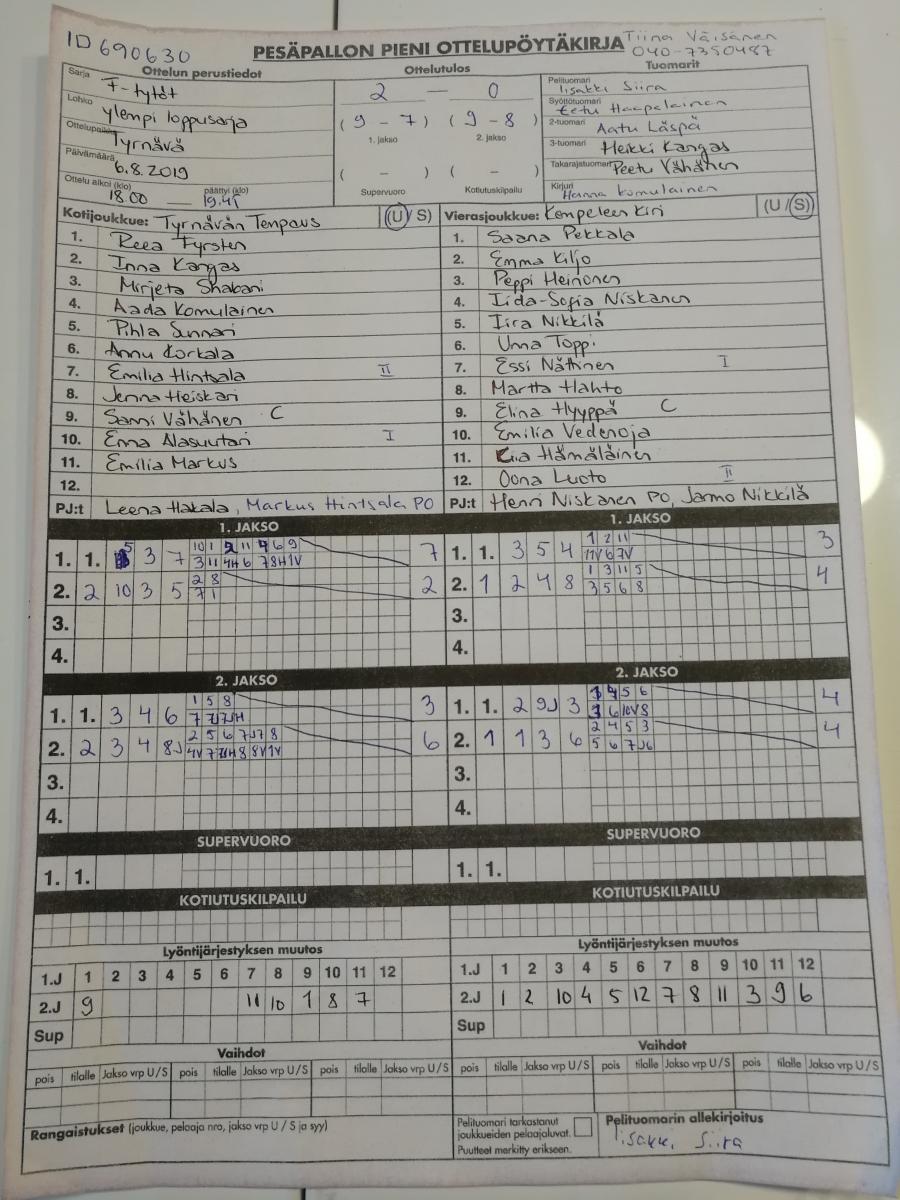 ID 690630
PESÄPALLON PIENI OTTELUPÖYTÄKIRJA
Tiina Väisänen
040-7350487
Ottelun perustiedot
Ottelutulos
Tuomarit
Sarja F-tytöt
Lohko ylempi loppusarja
Ottelupaikka Tyrnävä
Päivämäärä 6.8.2019
Ottelu alkoi (klo) 18.00 — päättyi (klo) 19.45
2 — 0
(9 - 7) (9 - 8)
1. jakso 2. jakso
( - ) ( - )
Supervuoro Kotiutuskilpailu
Pelituomari Iisakki Siira
Syöttötuomari Eetu Haapalainen
2-tuomari Aatu Läspä
3-tuomari Heikki Kangas
Takarajatuomari Peetu Vähänen
Kirjuri Hanna Komulainen
Kotijoukkue: Tyrnävän Tempaus (U / S)
1. Reea Fyrsten
2. Inna Kangas
3. Mirjeta Shabani
4. Aada Komulainen
5. Pihla Sunnari
6. Annu Korkala
7. Emilia Hintsala II
8. Jenna Heiskari
9. Sanni Vähänen C
10. Enna Alasuutari I
11. Emilia Markus
12.
PJ:t Leena Hakala, Markus Hintsala PO
Vierasjoukkue: Kempeleen Kiri (U / S)
1. Saana Pekkala
2. Emma Kiljo
3. Peppi Heinonen
4. Iida-Sofia Niskanen
5. Iira Nikkilä
6. Unna Toppi
7. Essi Nättinen I
8. Martta Hahto
9. Elina Hyyppä C
10. Emilia Vedenoja
11. Kiia Hämäläinen
12. Oona Luoto II
PJ:t Henri Niskanen PO, Jarmo Nikkilä
1. JAKSO
1. 1. 5 3 7
7
2. 2 10 3 5 2 8
7 1
2
3.
4.
1. JAKSO
1. 1. 3 5 4 1 2 11
11V 6 7V
3
2. 1 2 4 8 1 3 11 5
3 5 6 8
4
3.
4.
2. JAKSO
1. 1. 3 4 6 1 5 8
3
2. 2 3 4 8J 2 5 6 7J 7 8
6
3.
4.
2. JAKSO
1. 1. 2 9J 3
4
2. 1 1 3 6 2 4 5 3
5 6 7 J6
4
3.
4.
SUPERVUORO
1. 1.
SUPERVUORO
1. 1.
KOTIUTUSKILPAILU
KOTIUTUSKILPAILU
Lyöntijärjestyksen muutos
1.J 1 2 3 4 5 6 7 8 9 10 11 12
2.J 9 11 10 1 8 7
Sup
Lyöntijärjestyksen muutos
1.J 1 2 3 4 5 6 7 8 9 10 11 12
2.J 1 2 10 4 5 12 7 8 11 3 9 6
Sup
Vaihdot
pois tilalle Jakso vrp U / S pois tilalle Jakso vrp U / S pois tilalle Jakso vrp U / S
Vaihdot
pois tilalle Jakso vrp U / S pois tilalle Jakso vrp U / S pois tilalle Jakso vrp U / S
Rangaistukset (joukkue, pelaaja nro, jakso vrp U / S ja syy)
Pelituomari tarkastanut
joukkueiden pelaajaluvat.
Puutteet merkitty erikseen.
Pelituomarin allekirjoitus
Iisakki Siira